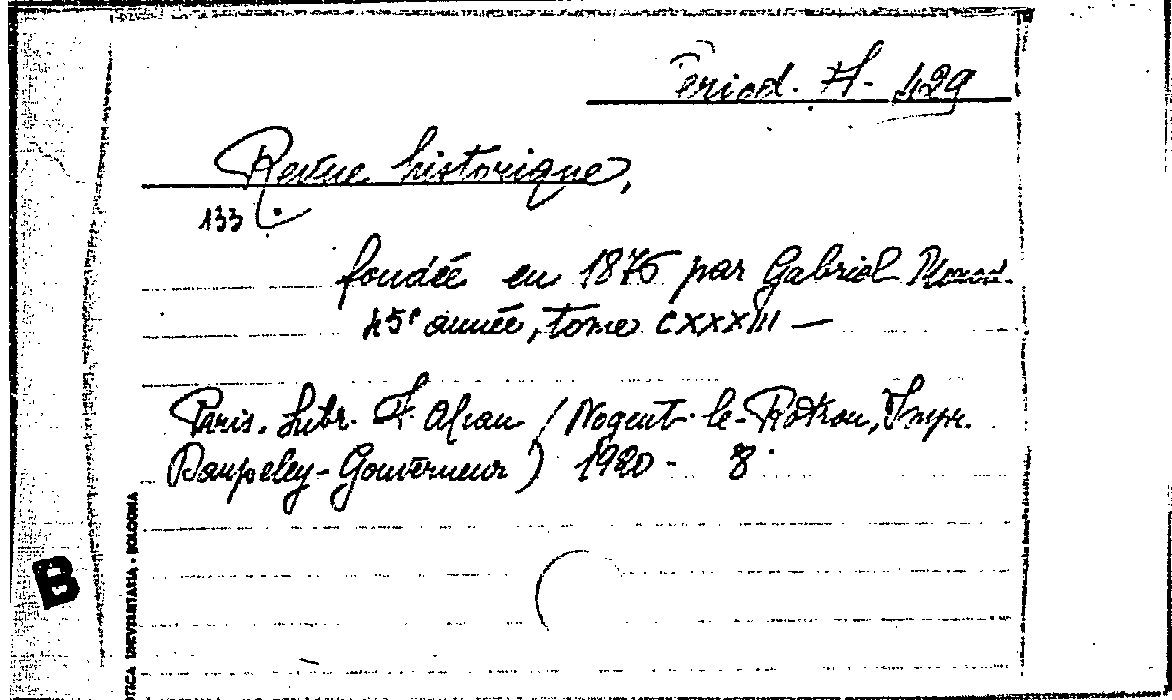 Period. A. 429
Revue historique,
133
fondée en 1876 par Gabriel Monod.
45e année, tome CXXXIII —
Paris. Libr. F. Alcan (Nogent-le-Rotrou, Impr.
Daupeley-Gouverneur) 1920 - 8°
B
OTICA INEVENTARIA - BOLOGNA